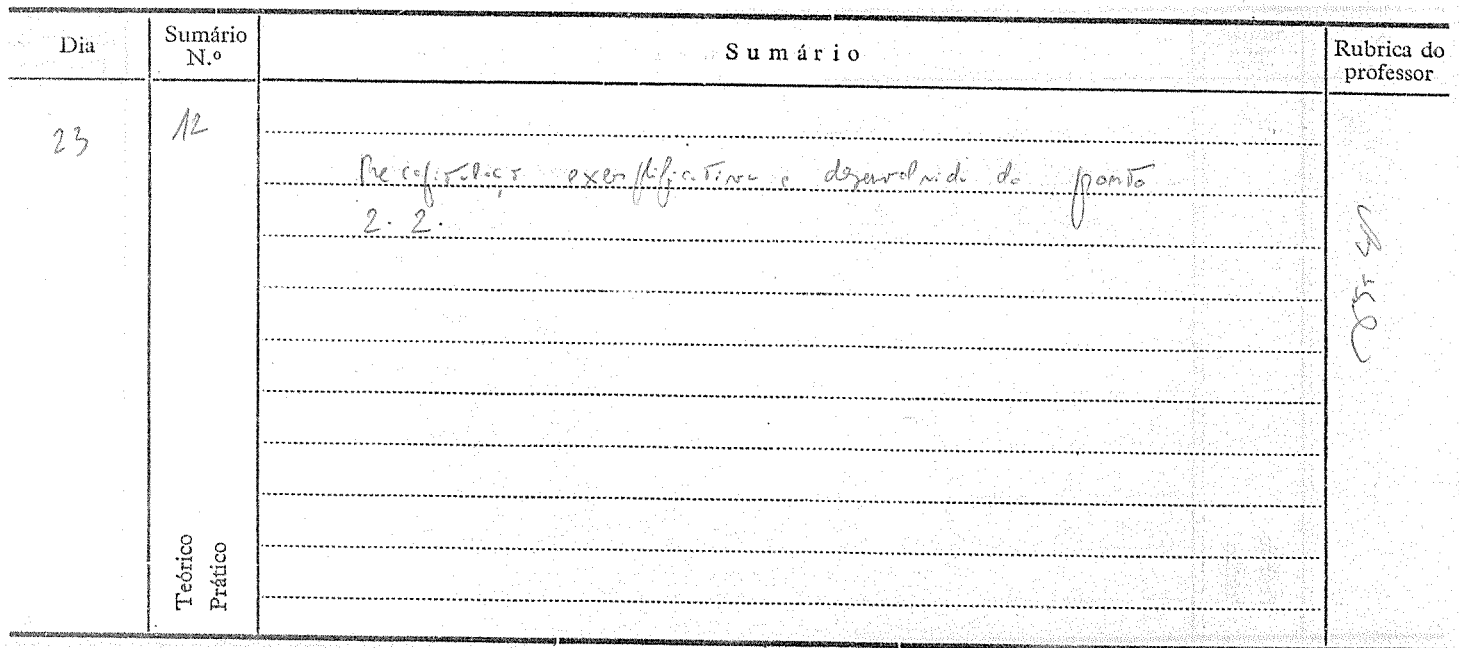 Dia
Sumário N.º
Sumário
Rubrica do professor
23
12
Recapitulação exemplificativa e desenvolvida do ponto
2.2.
Teórico
Prático